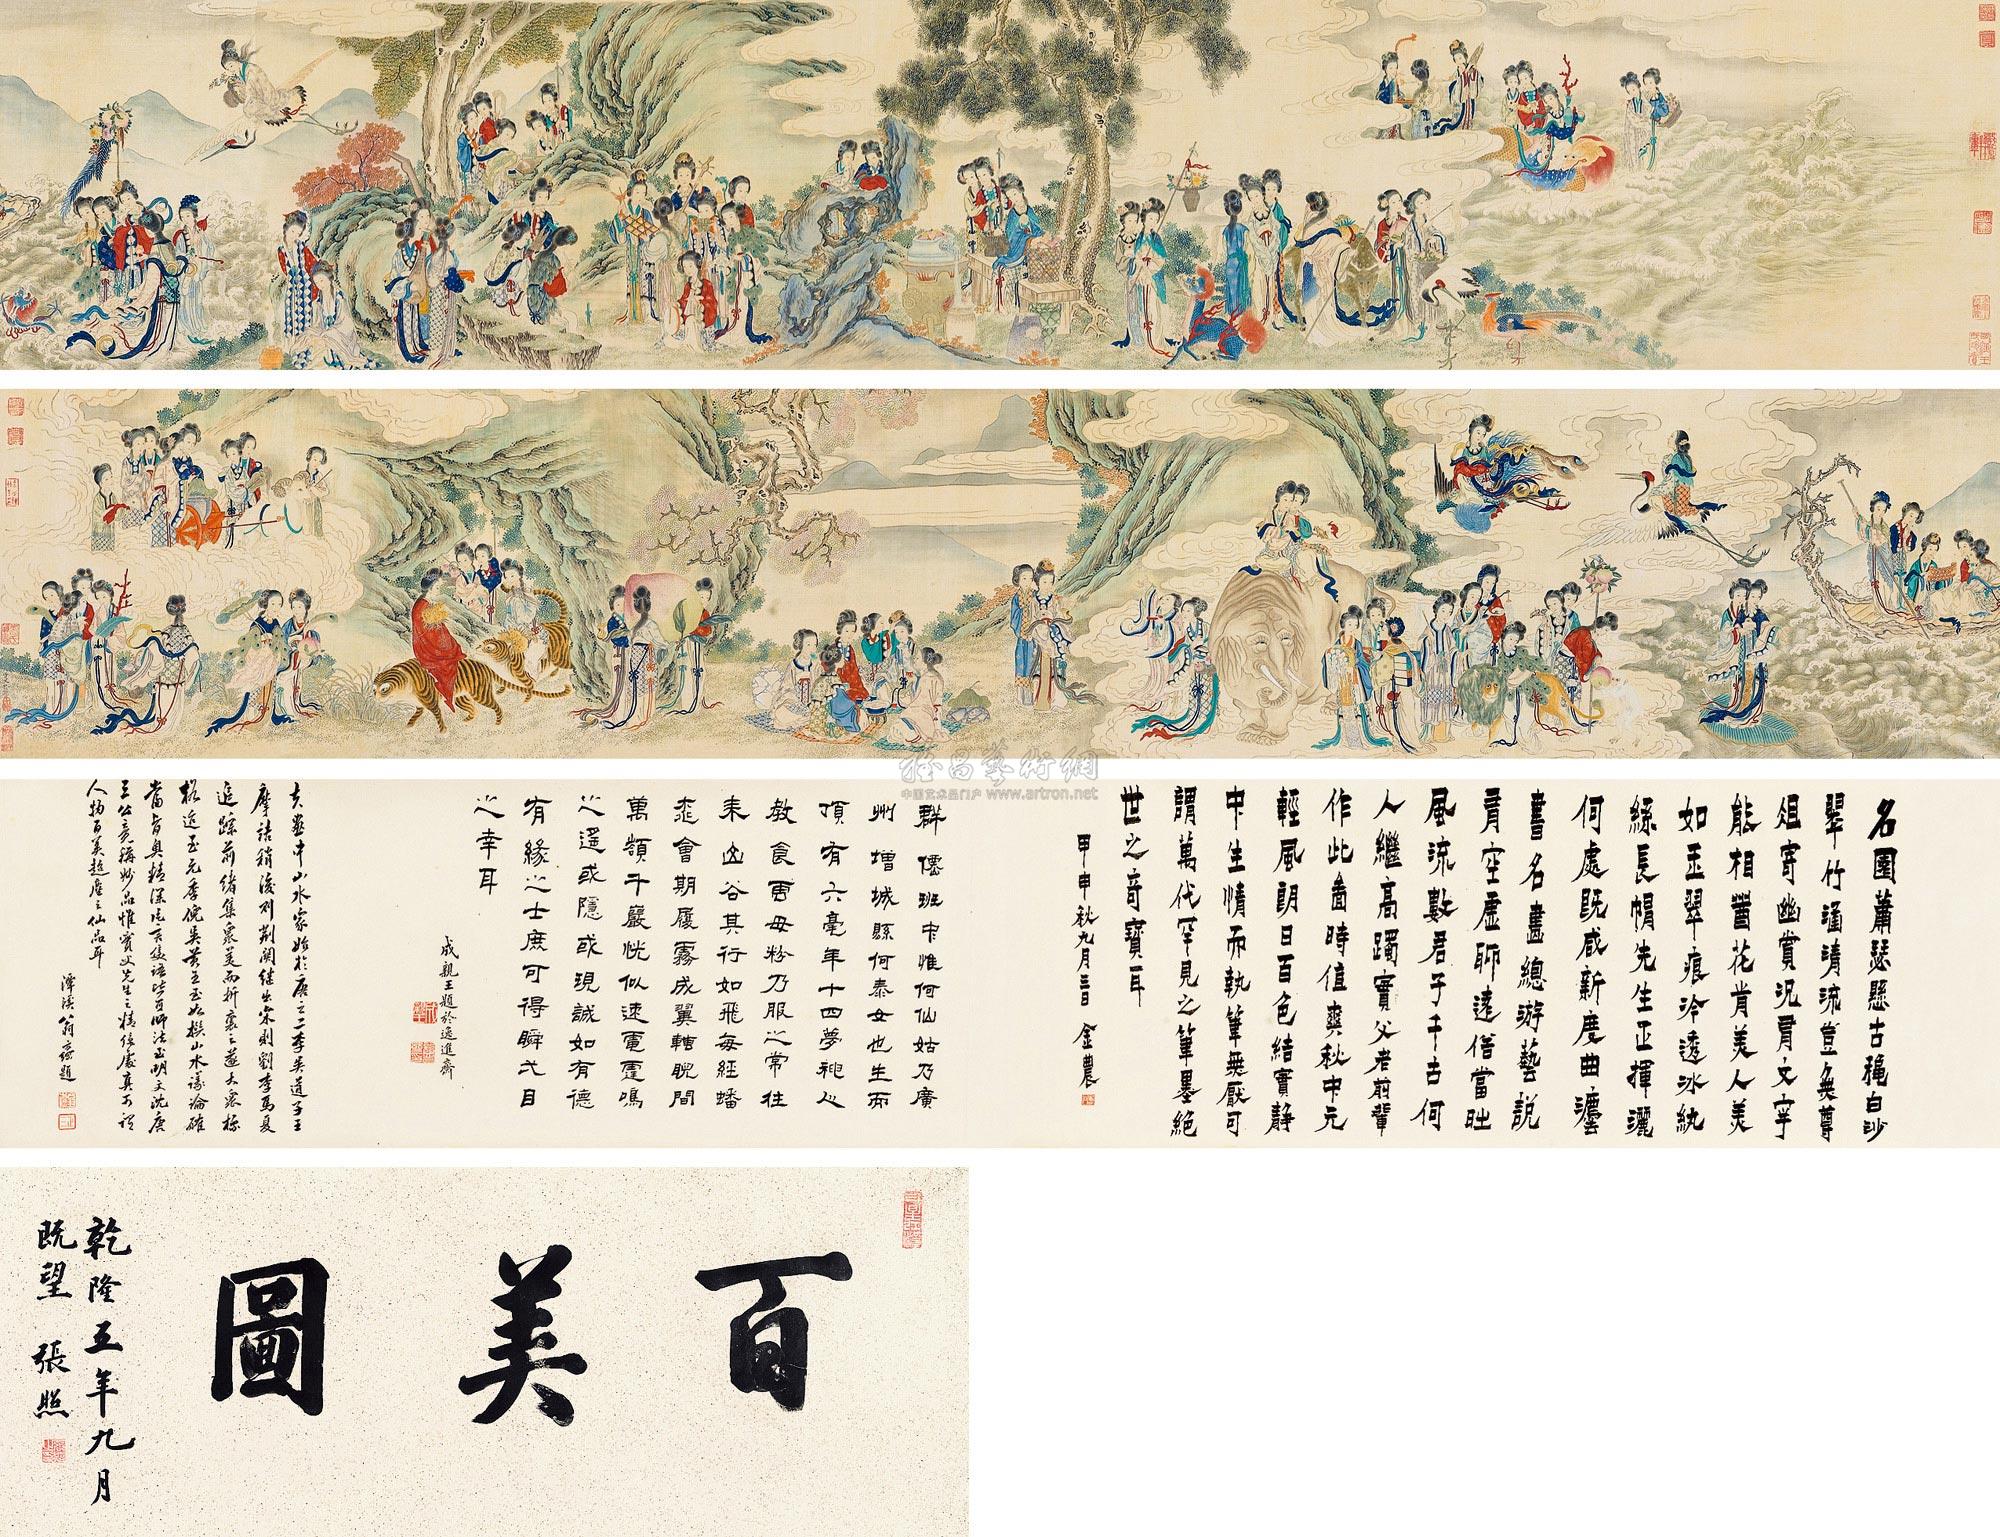 百美圖
乾隆五年九月
既望 張照
名園蕭瑟懸古穐白沙
翠竹涵清流豈無尊
俎寄幽賞況肩文宇
能相嘗花肯美人美
如玉翠痕冷透冰紈
絲長帽先生正揮灑
何處既咸新度曲瀍
書名畫總游藝說
肩空虛聊遠借當時
風流數君子千古何
人繼高躅實父者前輩
作此畵時值爽秋中元
輕風朗日百色結實静
中生情而執筆無厭可
謂萬代罕見之筆墨絶
世之奇寶耳
甲申秋九月三日 金農
群僊班中惟何仙姑乃廣
州增城縣何泰女也生而
頂有六毫年十四夢神人
教食雲母粉乃服之常往
来山谷其行如飛每經蟠
桃會期履霧成翼轄睨間
萬顡千巖恍似速電霆鳴
之遥或隱或現誠如有德
有緣之士庶可得瞬弍目
之幸耳
成親王題於逸進齋
夫畫中山水家始於唐之二李吳道子王
摩詰稍後則荆關继出宋則劉李馬夏
追踪前緒集衆美而折衷之遂大衆标
格迨至元季倪吳黃王至於撰山水議論確
當旨奥精深片言隻語皆可師法至明文沈唐
三公竞稱妙品惟實父先生之精俊處真可謂
人物百美超塵之仙品耳
潭溪翁方綱題
中国艺术品门户 www.artron.net